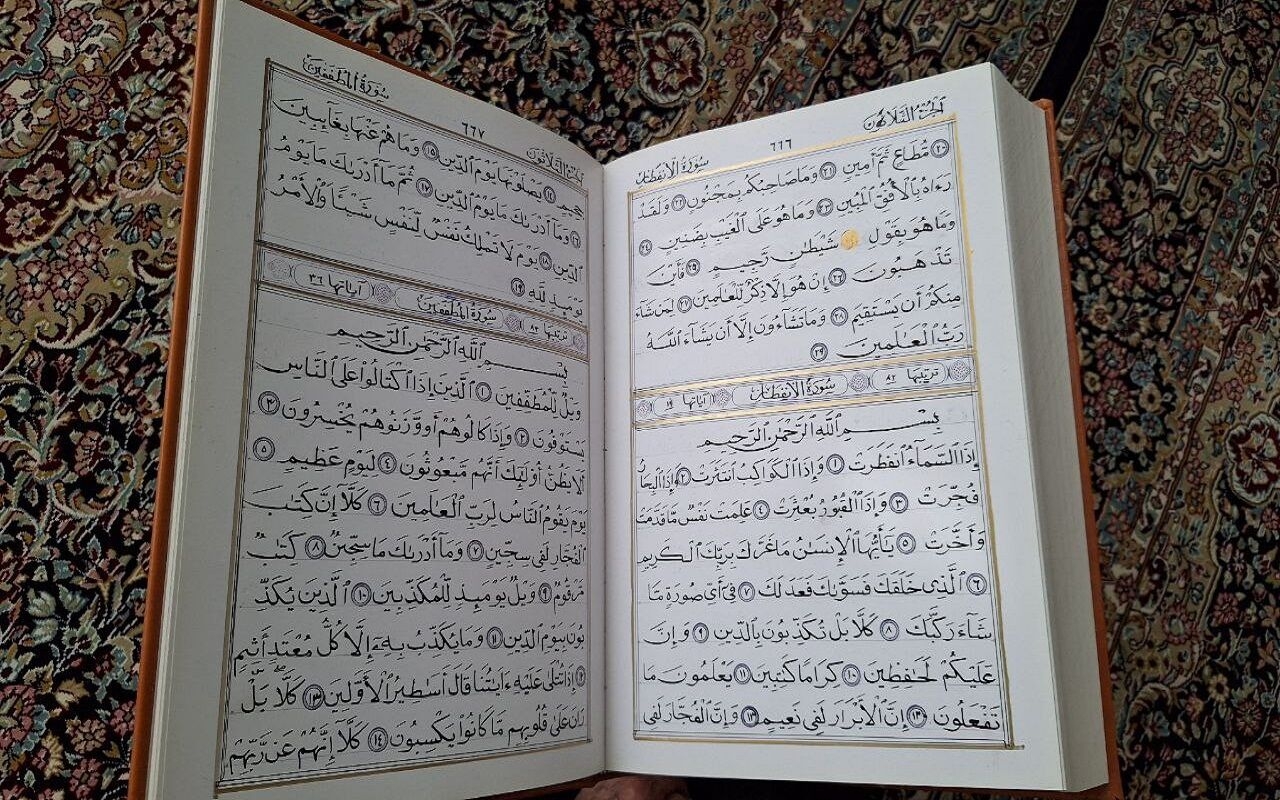 الجزء الثلاثون
٦٦٦
سورة الانفطار
٢٠ مُّطَاعٍ ثَمَّ أَمِينٍ ٢١ وَمَا صَاحِبُكُم بِمَجْنُونٍ ٢٢ وَلَقَدْ
رَءَاهُ بِالْأُفُقِ الْمُبِينِ ٢٣ وَمَا هُوَ عَلَى الْغَيْبِ بِضَنِينٍ ٢٤
وَمَا هُوَ بِقَوْلِ شَيْطَٰنٍ رَّجِيمٍ ٢٥ فَأَيْنَ
تَذْهَبُونَ ٢٦ إِنْ هُوَ إِلَّا ذِكْرٌ لِّلْعَٰلَمِينَ ٢٧ لِمَن شَآءَ
مِنكُمْ أَن يَسْتَقِيمَ ٢٨ وَمَا تَشَآءُونَ إِلَّا أَن يَشَآءَ اللَّهُ
رَبُّ الْعَٰلَمِينَ ٢٩
ترتيبها ٨٢ سورة الانفطار آياتها ١٩
بِسْمِ اللَّهِ الرَّحْمَٰنِ الرَّحِيمِ
إِذَا السَّمَآءُ انفَطَرَتْ ١ وَإِذَا الْكَوَاكِبُ انتَثَرَتْ ٢ وَإِذَا الْبِحَارُ
فُجِّرَتْ ٣ وَإِذَا الْقُبُورُ بُعْثِرَتْ ٤ عَلِمَتْ نَفْسٌ مَّا قَدَّمَتْ
وَأَخَّرَتْ ٥ يَٰٓأَيُّهَا الْإِنسَٰنُ مَا غَرَّكَ بِرَبِّكَ الْكَرِيمِ
٦ الَّذِي خَلَقَكَ فَسَوَّىٰكَ فَعَدَلَكَ ٧ فِىٓ أَىِّ صُورَةٍ مَّا
شَآءَ رَكَّبَكَ ٨ كَلَّا بَلْ تُكَذِّبُونَ بِالدِّينِ ٩ وَإِنَّ
عَلَيْكُمْ لَحَٰفِظِينَ ١٠ كِرَامًا كَٰتِبِينَ ١١ يَعْلَمُونَ مَا
تَفْعَلُونَ ١٢ إِنَّ الْأَبْرَارَ لَفِى نَعِيمٍ ١٣ وَإِنَّ الْفُجَّارَ لَفِى
الجزء الثلاثون
٦٦٧
سورة المطففين
جَحِيمٍ ١٤ يَصْلَوْنَهَا يَوْمَ الدِّينِ ١٥ وَمَا هُمْ عَنْهَا بِغَآئِبِينَ
١٦ وَمَآ أَدْرَىٰكَ مَا يَوْمُ الدِّينِ ١٧ ثُمَّ مَآ أَدْرَىٰكَ مَا يَوْمُ
الدِّينِ ١٨ يَوْمَ لَا تَمْلِكُ نَفْسٌ لِّنَفْسٍ شَيْئًا وَالْأَمْرُ
يَوْمَئِذٍ لِّلَّهِ ١٩
ترتيبها ٨٣ سورة المطففين آياتها ٣٦
بِسْمِ اللَّهِ الرَّحْمَٰنِ الرَّحِيمِ
وَيْلٌ لِّلْمُطَفِّفِينَ ١ الَّذِينَ إِذَا اكْتَالُوا عَلَى النَّاسِ
يَسْتَوْفُونَ ٢ وَإِذَا كَالُوهُمْ أَو وَّزَنُوهُمْ يُخْسِرُونَ ٣
أَلَا يَظُنُّ أُولَٰٓئِكَ أَنَّهُم مَّبْعُوثُونَ ٤ لِيَوْمٍ عَظِيمٍ ٥
يَوْمَ يَقُومُ النَّاسُ لِرَبِّ الْعَٰلَمِينَ ٦ كَلَّآ إِنَّ كِتَٰبَ
الْفُجَّارِ لَفِى سِجِّينٍ ٧ وَمَآ أَدْرَىٰكَ مَا سِجِّينٌ ٨ كِتَٰبٌ
مَّرْقُومٌ ٩ وَيْلٌ يَوْمَئِذٍ لِّلْمُكَذِّبِينَ ١٠ الَّذِينَ يُكَذِّ
بُونَ بِيَوْمِ الدِّينِ ١١ وَمَا يُكَذِّبُ بِهِۦٓ إِلَّا كُلُّ مُعْتَدٍ أَثِيمٍ
١٢ إِذَا تُتْلَىٰ عَلَيْهِ ءَايَٰتُنَا قَالَ أَسَٰطِيرُ الْأَوَّلِينَ ١٣ كَلَّا بَلْ
رَانَ عَلَىٰ قُلُوبِهِم مَّا كَانُوا يَكْسِبُونَ ١٤ كَلَّآ إِنَّهُمْ عَن رَّبِّهِمْ